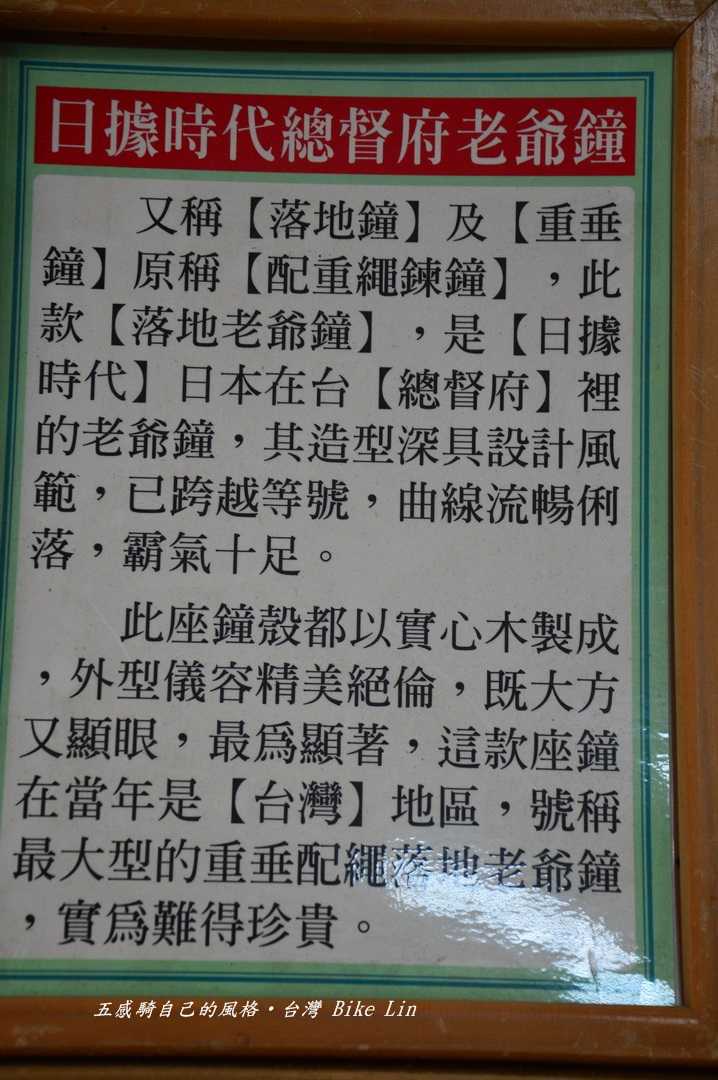 日據時代總督府老爺鐘
又稱【落地鐘】及【重垂
鐘】原稱【配重繩鍊鐘】，此
款【落地老爺鐘】，是【日據
時代】日本在台【總督府】裡
的老爺鐘，其造型深具設計風
範，已跨越等號，曲線流暢俐
落，霸氣十足。
此座鐘殼都以實心木製成
，外型儀容精美絕倫，既大方
又顯眼，最爲顯著，這款座鐘
在當年是【台灣】地區，號稱
最大型的重垂配繩落地老爺鐘
，實爲難得珍貴。
五感騎自己的風格‧台灣 Bike Lin